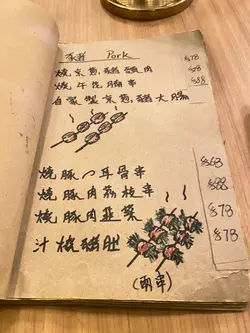 豬類 Pork
燒京葱豬頸肉 $78
燒午花腩串 $78
自家製京葱豬大腸 $88
燒豚八耳骨串 $68
燒豚肉荔枝串 $88
燒豚肉韭菜 $78
汁燒豬肚 $78
(兩串)